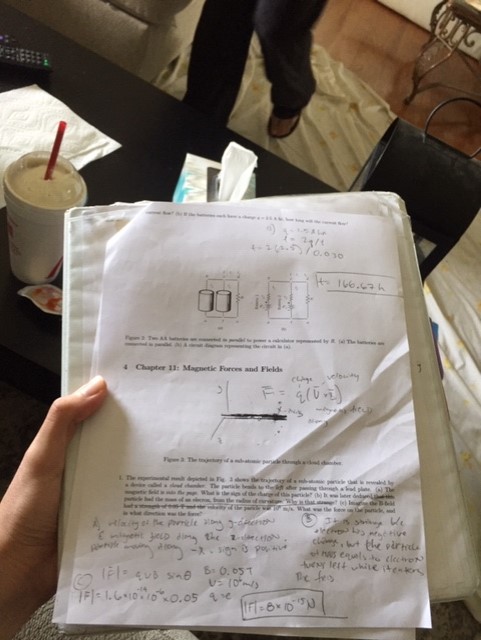 current flow? (b) If the batteries each have a charge q = 2.5 A hr, how long will the current flow?
b) q = 2.5 A hr
I = 2q/t
t = 2(2.5)/0.030
t = 166.67 h
Figure 2: Two AA batteries are connected in parallel to power a calculator represented by R. (a) The batteries are
connected in parallel. (b) A circuit diagram representing the circuit in (a).
4 Chapter 11: Magnetic Forces and Fields
charge velocity
F = q(v × B)
magnetic field
Figure 3: The trajectory of a sub-atomic particle through a cloud chamber.
1. The experimental result depicted in Fig. 3 shows the trajectory of a sub-atomic particle that is revealed by
a device called a cloud chamber. The particle bends to the left after passing through a lead plate. (a) The
magnetic field is into the page. What is the sign of the charge of this particle? (b) It was later deduced that this
particle had the mass of an electron, from the radius of curvature. Why is that strange? (c) Imagine the B-field
had a strength of 0.05 T and the velocity of the particle was 10⁶ m/s. What was the force on the particle, and
in what direction was the force?
velocity of the particle along y-direction
magnetic field along the z-direction,
particle moving along -x, sign is positive
It is strange b/c
electron has negative
charge, but the particle
mass equals to electron
turns left while it enters
the
C) |F| = qvB sinθ B = 0.05T
v = 10⁶ m/s
|F| = 1.6×10⁻¹⁹ × 10⁶ × 0.05
|F| = 8×10⁻¹⁵ N